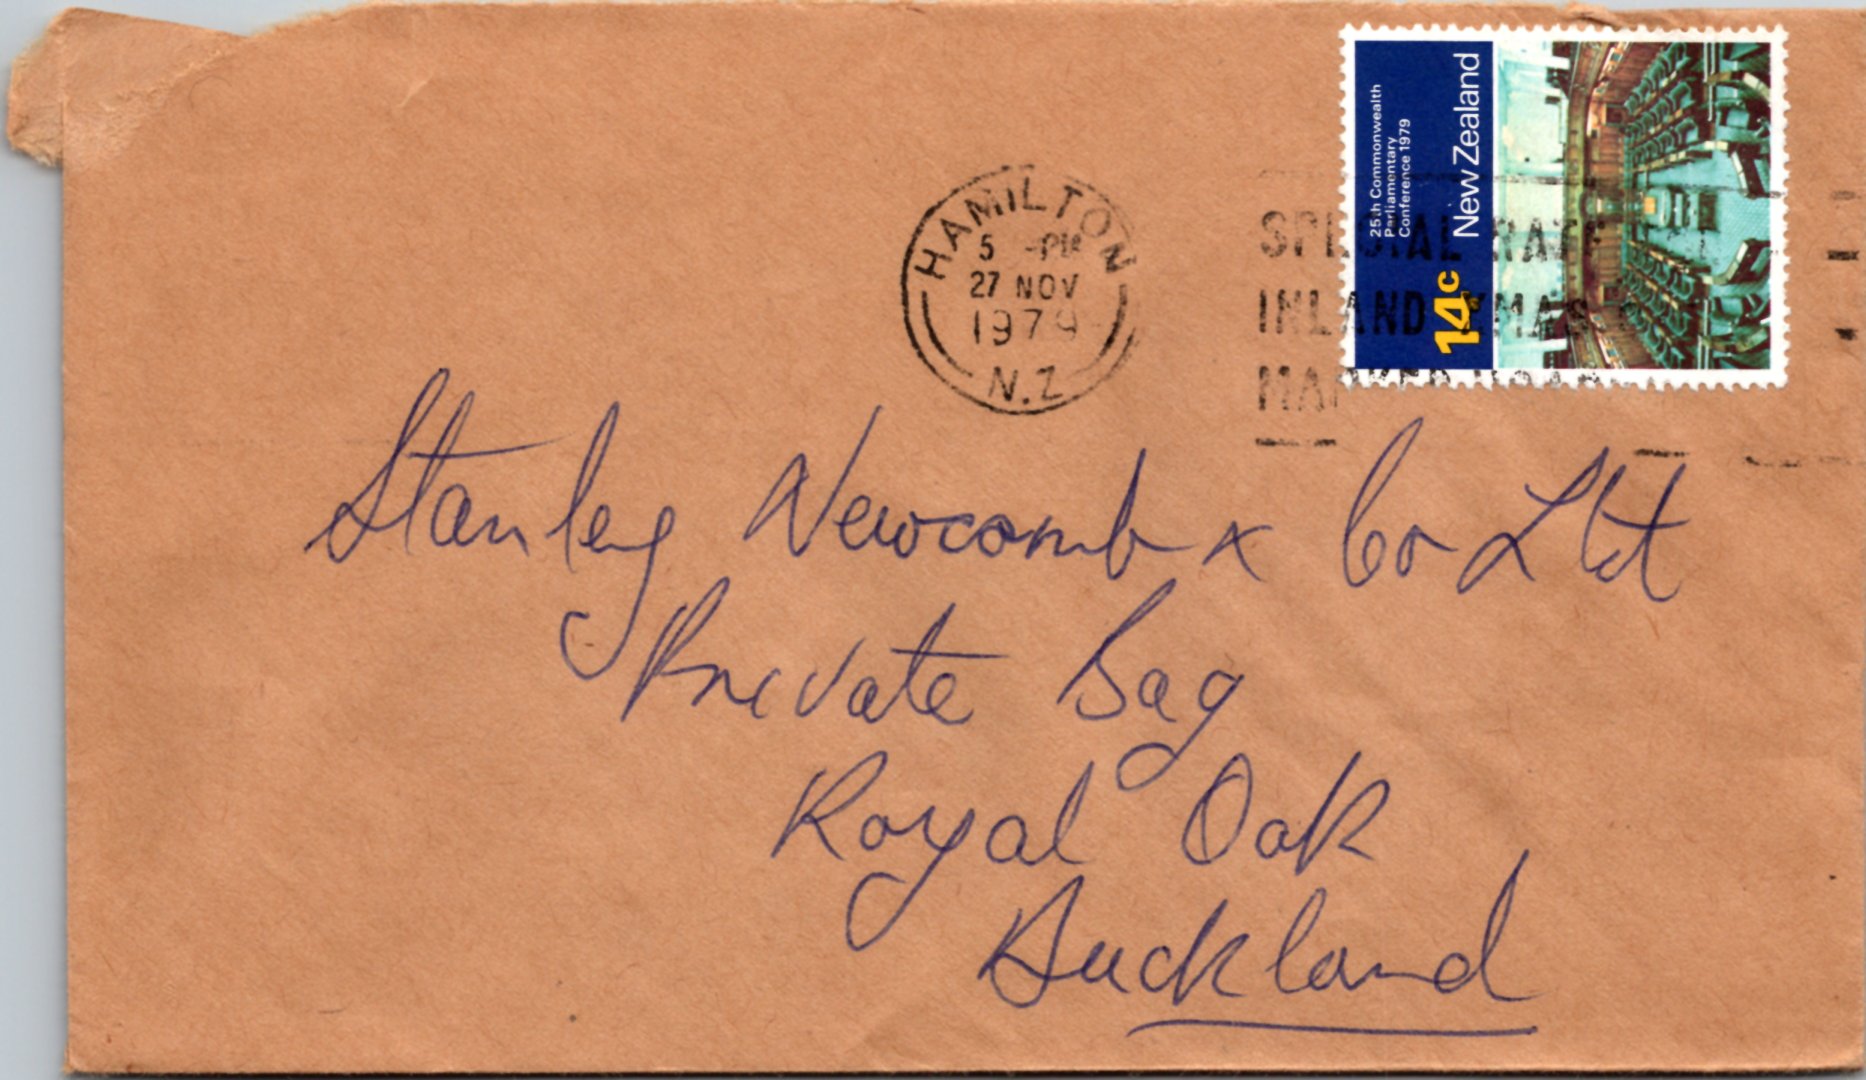 HAMILTON
5 -PM
27 NOV
1979
N.Z
SPECIAL RATE
INLAND XMAS
25th Commonwealth
Parliamentary
Conference 1979
New Zealand
14c
Stanley Newcomb x Co Ltd
Private Bag
Royal Oak
Auckland